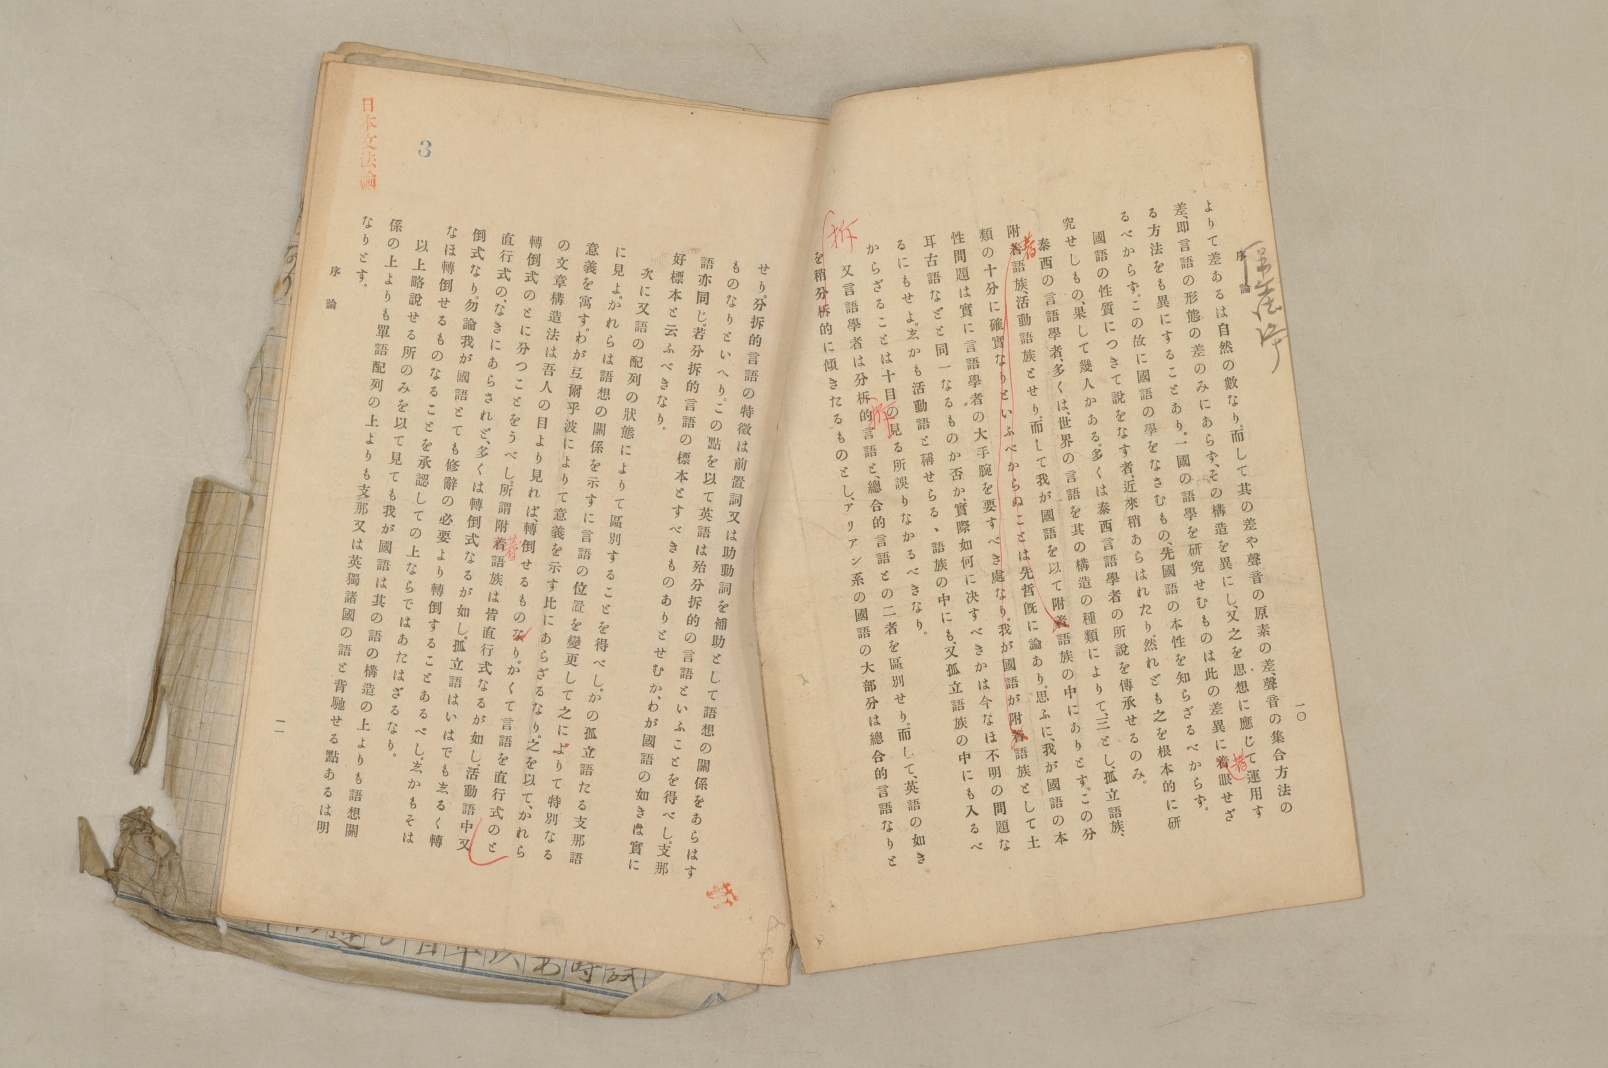 序論
一〇
よりて差あるは自然の數なり。而して其の差や聲音の原素の差、聲音の集合方法の
差、即言語の形態の差のみにあらず、その構造を異にし、又之を思想に應じて運用す
る方法をも異にすることあり。一國の語學を研究せむものは此の差異に着眼せざ
るべからず。この故に國語の學をなさむもの、先國語の本性を知らざるべからず。
國語の性質につきて說をなす者近來稍あらはれたり。然れども之を根本的に研
究せしもの、果して幾人かある。多くは泰西言語學者の所說を傳承せるのみ。
泰西の言語學者、多くは世界の言語を其の構造の種類によりて、三とし、孤立語族、
附着語族、活動語族とせり。而して我が國語を以て附着語族の中にありとす。この分
類の十分に確實なりといふべからぬことは先哲旣に論あり。思ふに、我が國語の本
性問題は實に言語學者の大手腕を要すべき處なり。我が國語が附着語族として土
耳古語などと同一なるものか否か、實際如何に決すべきかは今なほ不明の問題な
るにもせよ。志かも活動語と稱せらる、語族の中にも、又孤立語族の中にも入るべ
からざることは十目の見る所誤りなかるべきなり。
又言語學者は分柝的言語と、總合的言語との二者を區別せり。而して、英語の如き
を稍分柝的に傾きたるものとし、アリアン系の國語の大部分は總合的言語なりと
着
着
拆
拆
3
日本文法論
せり。分拆的言語の特徵は前置詞又は助動詞を補助として語想の關係をあらはす
ものなりといへり。この點を以て英語は殆分拆的の言語といふことを得べし。支那
語亦同じ。若分拆的言語の標本とすべきものありとせむか、わが國語の如きは實に
好標本と云ふべきなり。
次に又語の配列の狀態によりて區別することを得べし。かの孤立語たる支那語
に見よ。かれらは語想の關係を示すに言語の位置を變更して之によりて特別なる
意義を寓す。わが弖爾乎波によりて意義を示す比にあらざるなり。之を以て、かれら
の文章構造法は吾人の目より見れば轉倒せるものなり。かくて言語を直行式のと
轉倒式のとに分つことをうべし。所謂附着語族は皆直行式なるが如し。活動語中又
直行式の、なきにあらざれど、多くは轉倒式なるが如し。孤立語はいはでも志るく轉
倒式なり。勿論我が國語とても修辭の必要より轉倒することあるべし。志かもそは
なほ轉倒せるものなることを承認しての上ならではあたはざるなり。
以上略說せる所のみを以て見ても我が國語は其の語の構造の上よりも語想關
係の上よりも單語配列の上よりも支那又は英獨諸國の語と背馳せる點あるは明
なりとす。
着
序論
一一